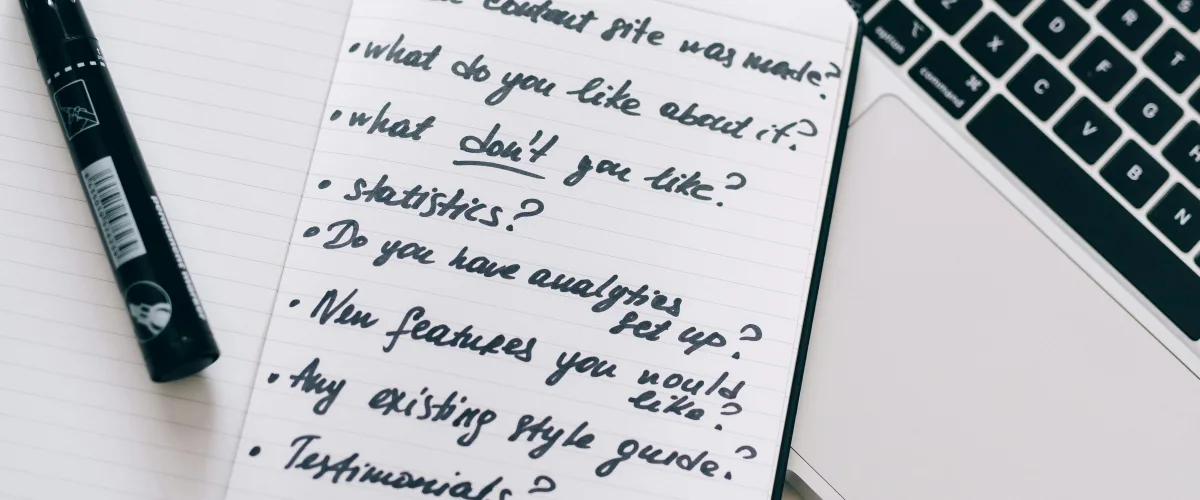 content site was made?
• what do you like about it?
• what don't you like?
• statistics?
• Do you have analytics
set up?
• New features you would
like?
• Any existing style guide?
• Testimonials?
option
command
Z
X
C
V
B
N
D
F
G
H
R
T